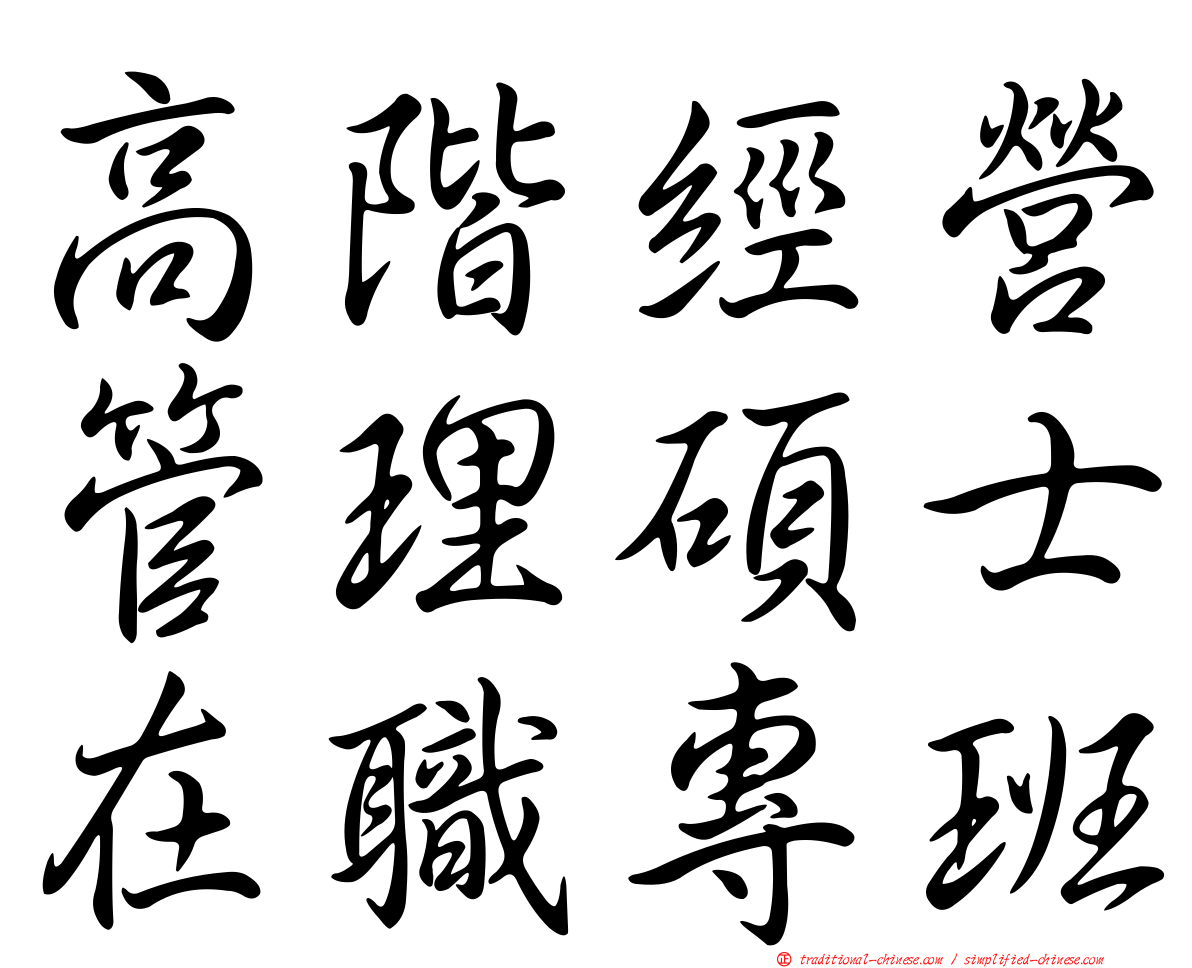 高階經營
管理碩士
在職專班
㊣ traditional-chinese.com / simplified-chinese.com